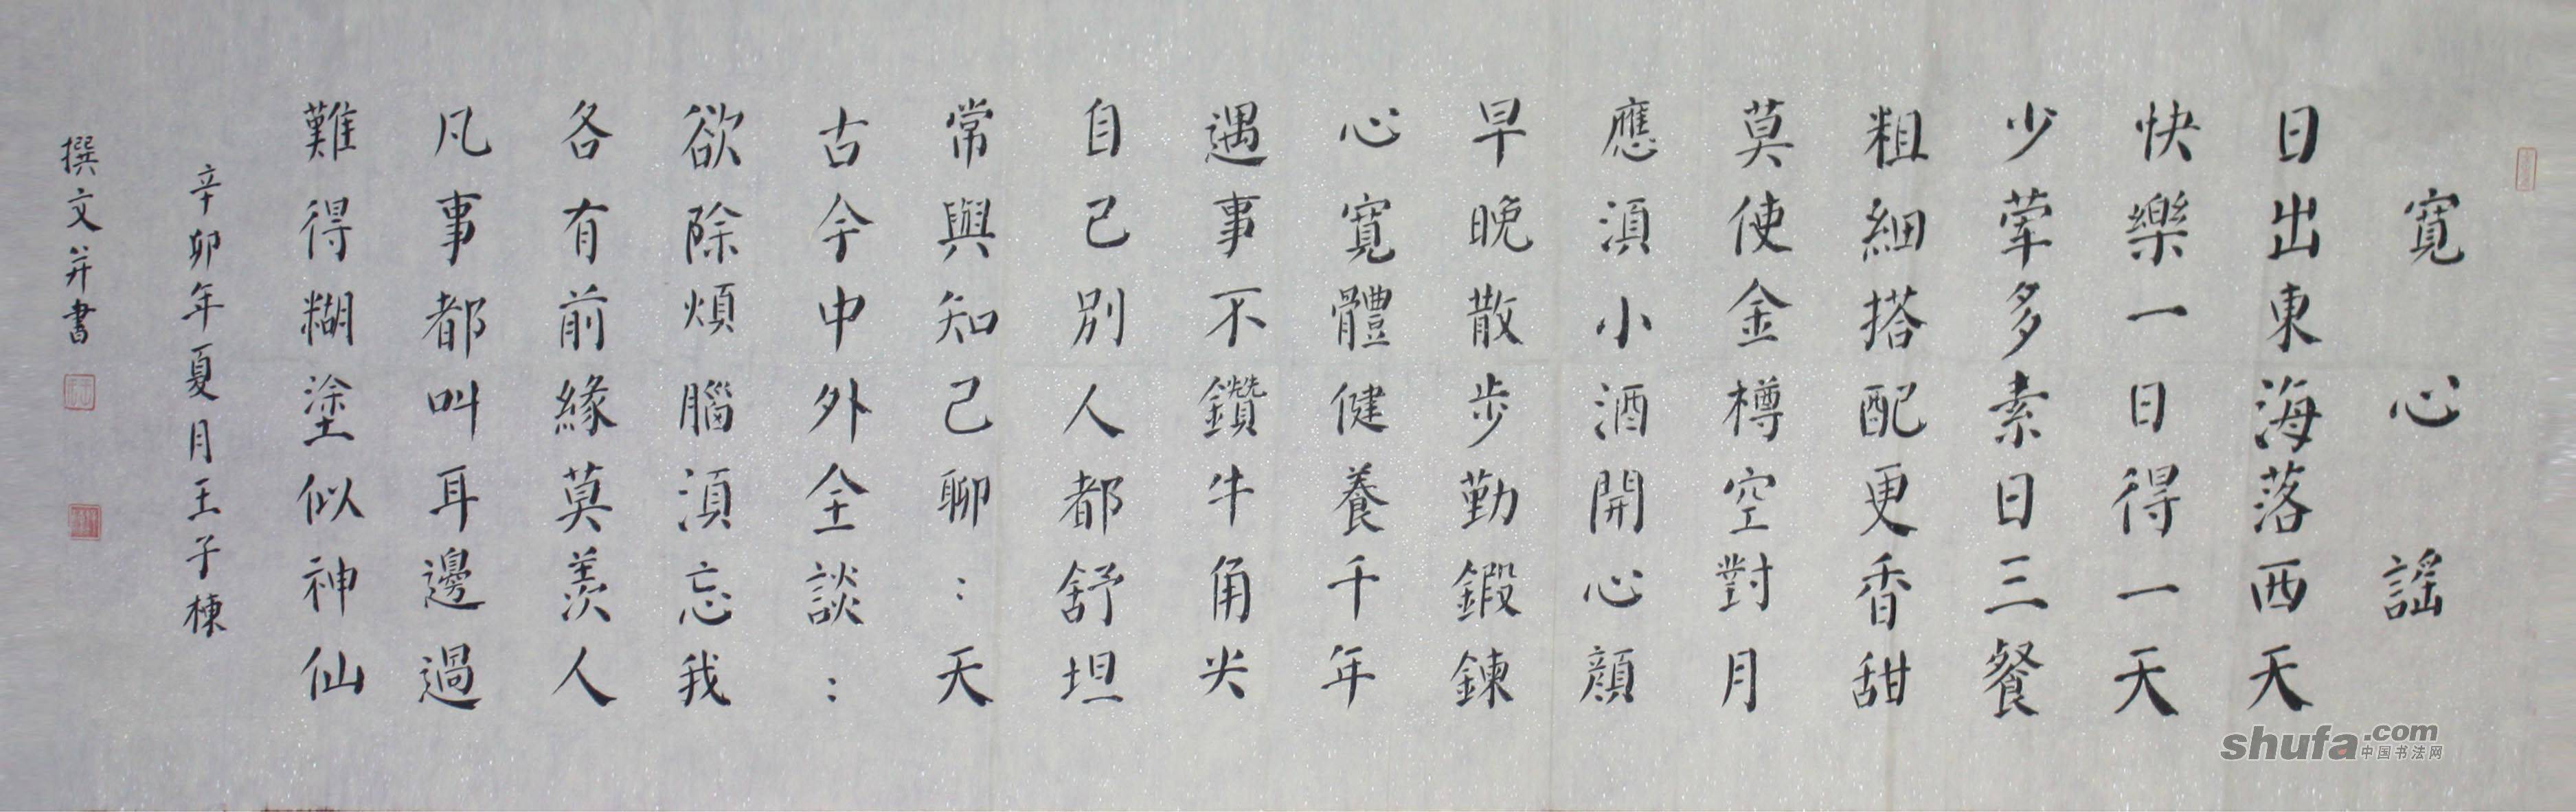 寬心謡
日出東海落西天
快樂一日得一天
少葷多素日三餐
粗細搭配更香甜
莫使金樽空對月
應須小酒開心顔
早晚散步勤鍛鍊
心寬體健養千年
遇事不鑽牛角尖
自己別人都舒坦
常與知己聊：天
古今中外全談：
欲除煩腦須忘我
各有前緣莫羨人
凡事都叫耳邊過
難得糊塗似神仙
辛卯年夏月王子棟
撰文并書
shufa.com
中国书法网